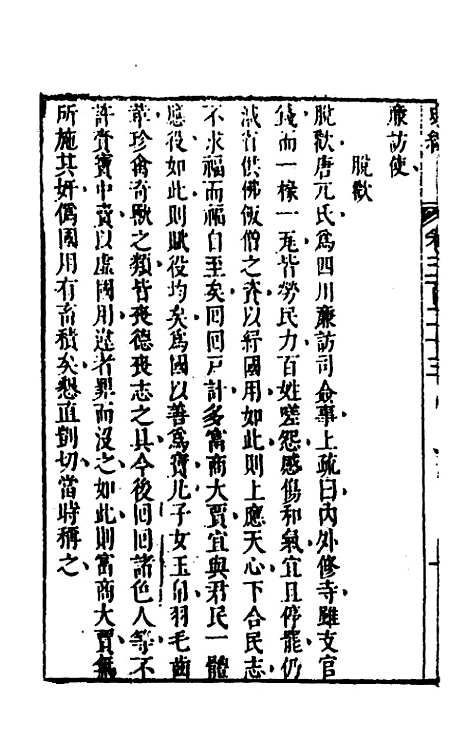 廉訪使
脫歡
脫歡唐兀氏爲四川廉訪司僉事上疏曰內外修寺雖支官
錢而一椽一瓦皆勞民力百姓嗟怨感傷和氣宜且停罷仍
減省供佛飯僧之資以紓國用如此則上應天心下合民志
不求福而福自至矣回回戸計多富商大賈宜與君民一體
應役如此則賦役均矣爲國以善爲寶凡子女玉帛羽毛齒
革珍禽奇獸之類皆喪德喪志之具今後回回諸色人等不
許賫寶中賣以虛國用違者罪而沒之如此則富商大賈無
所施其奸僞國用有畜積矣懇直剴切當時稱之